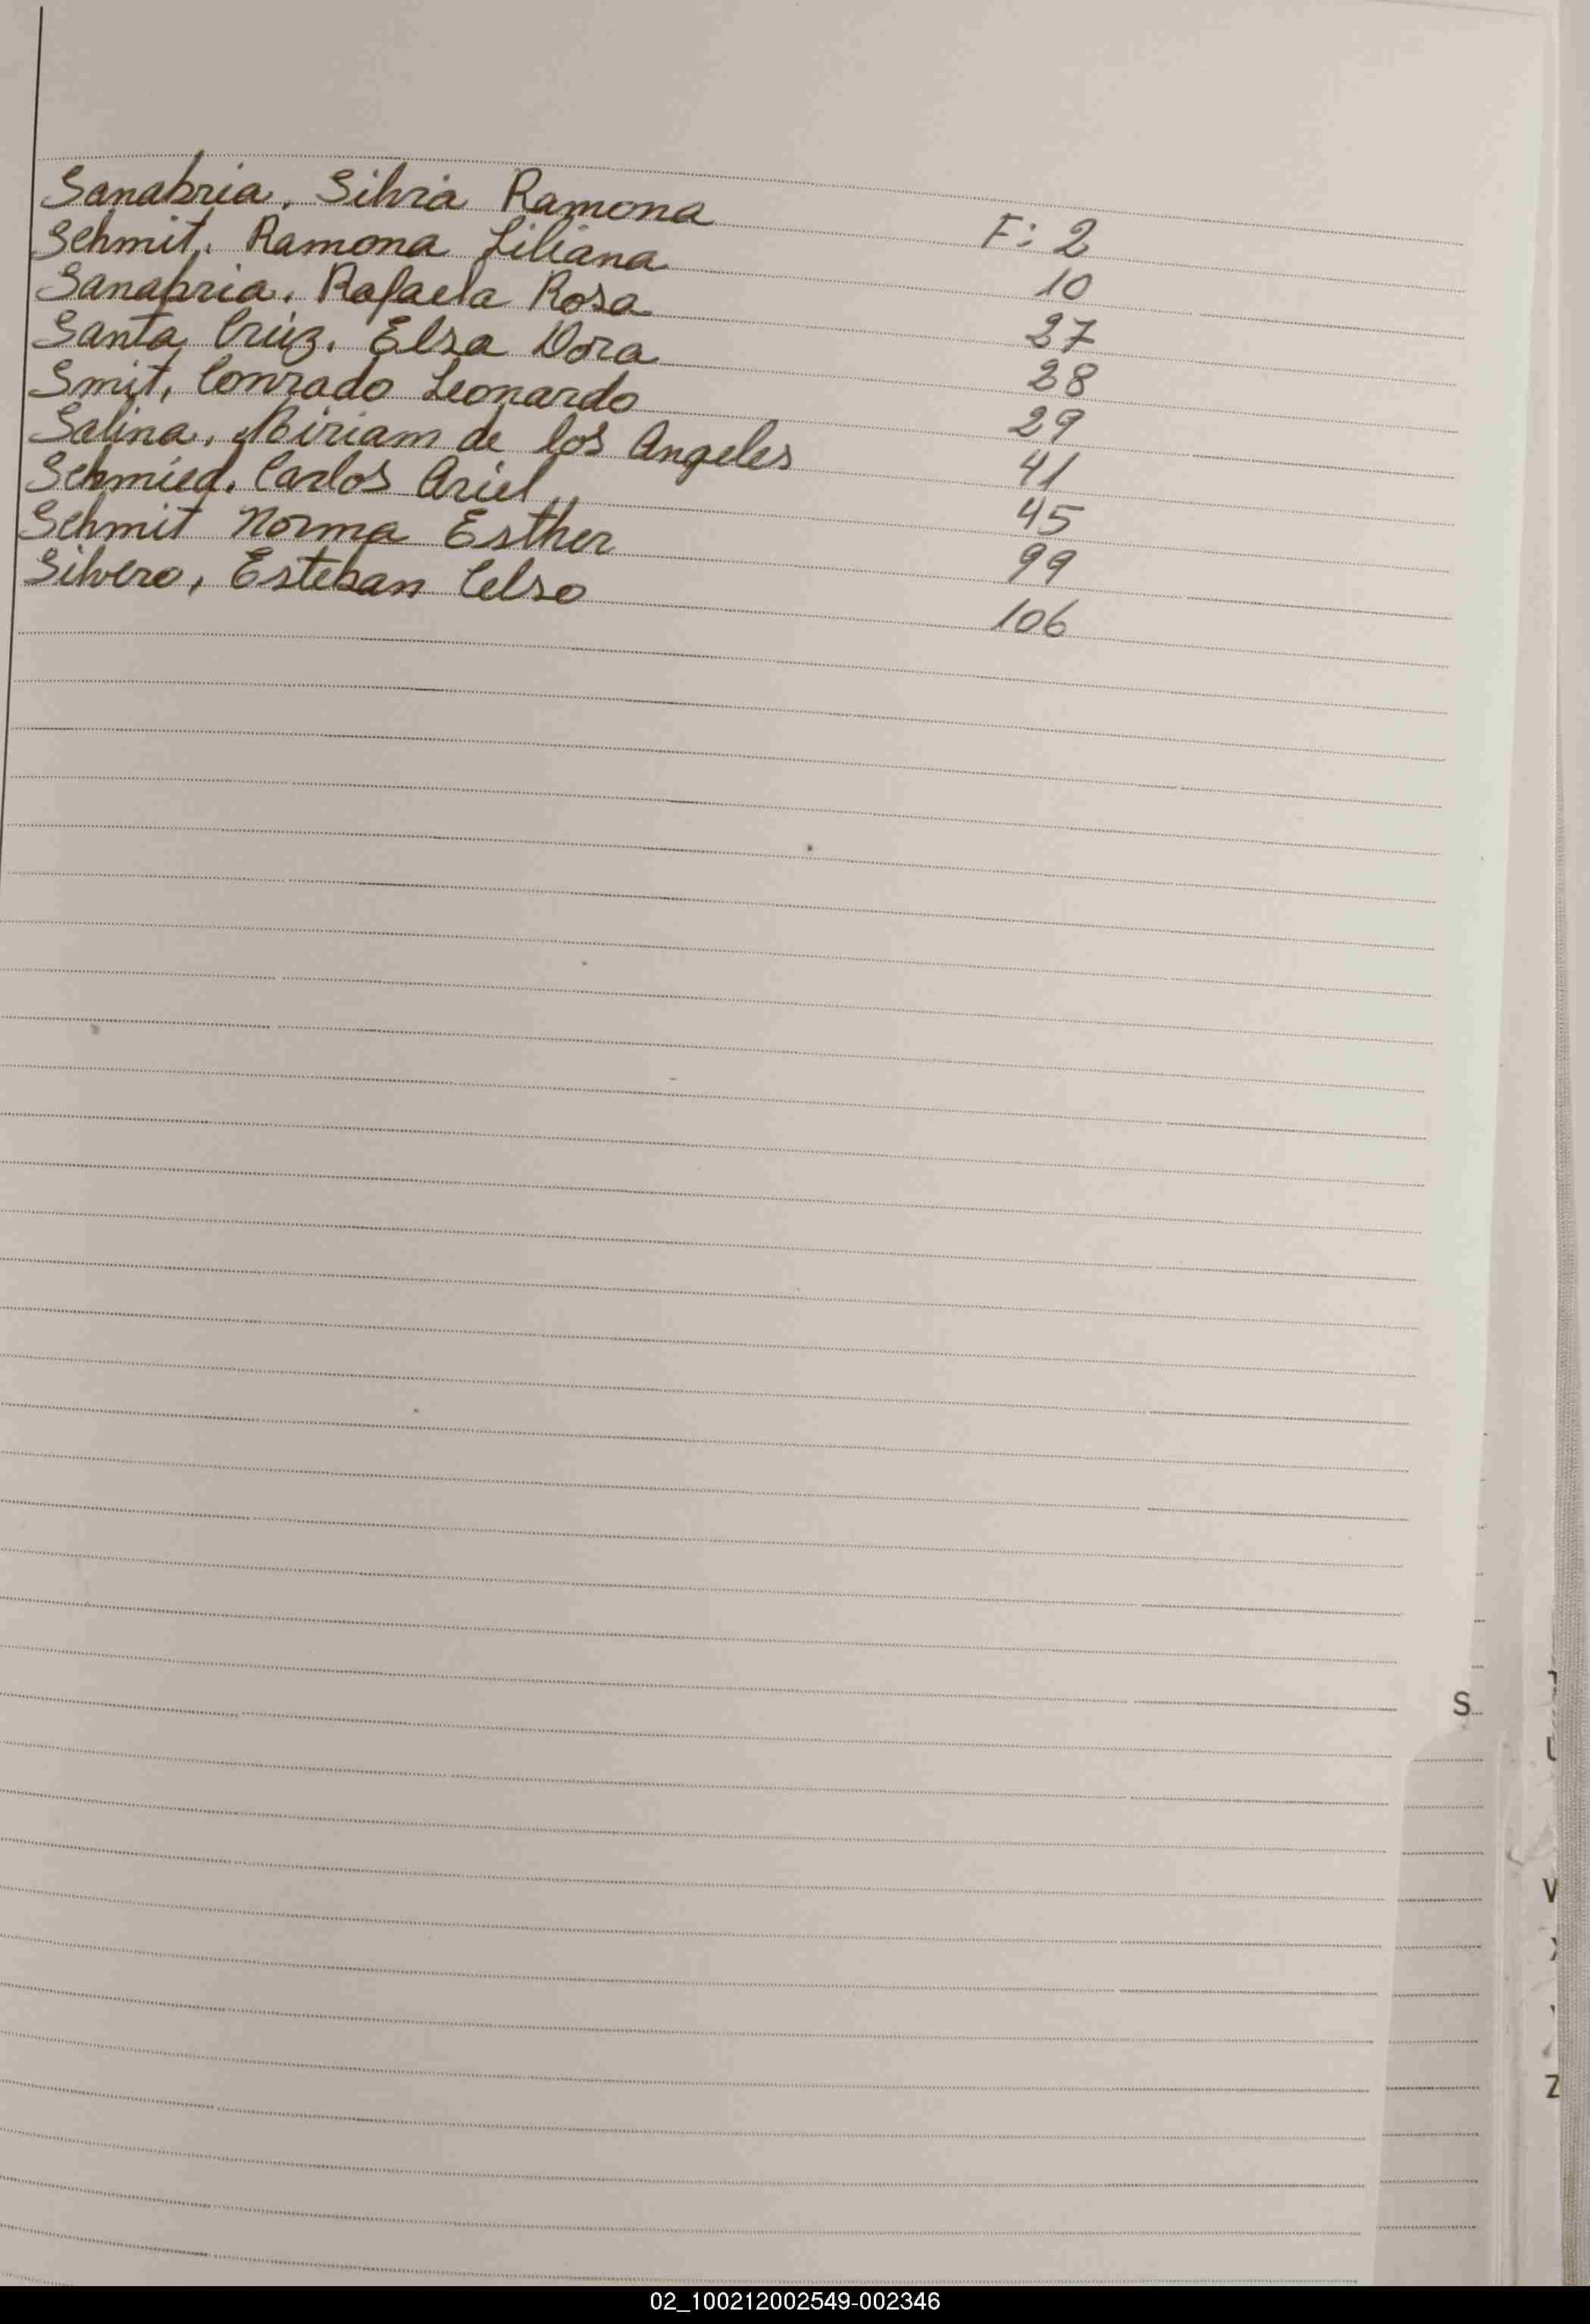 Sanabria, Silvia Ramona F: 2
Schmit, Ramona Liliana 10
Sanabria, Rafaela Rosa 27
Santa Cruz, Elsa Dora 28
Smit, Conrado Leonardo 29
Salina, Miriam de los Angeles 41
Schmied, Carlos Ariel 45
Schmit Norma Esther 99
Silvero, Esteban Celso 106
S
U
V
X
Z
02_100212002549-002346